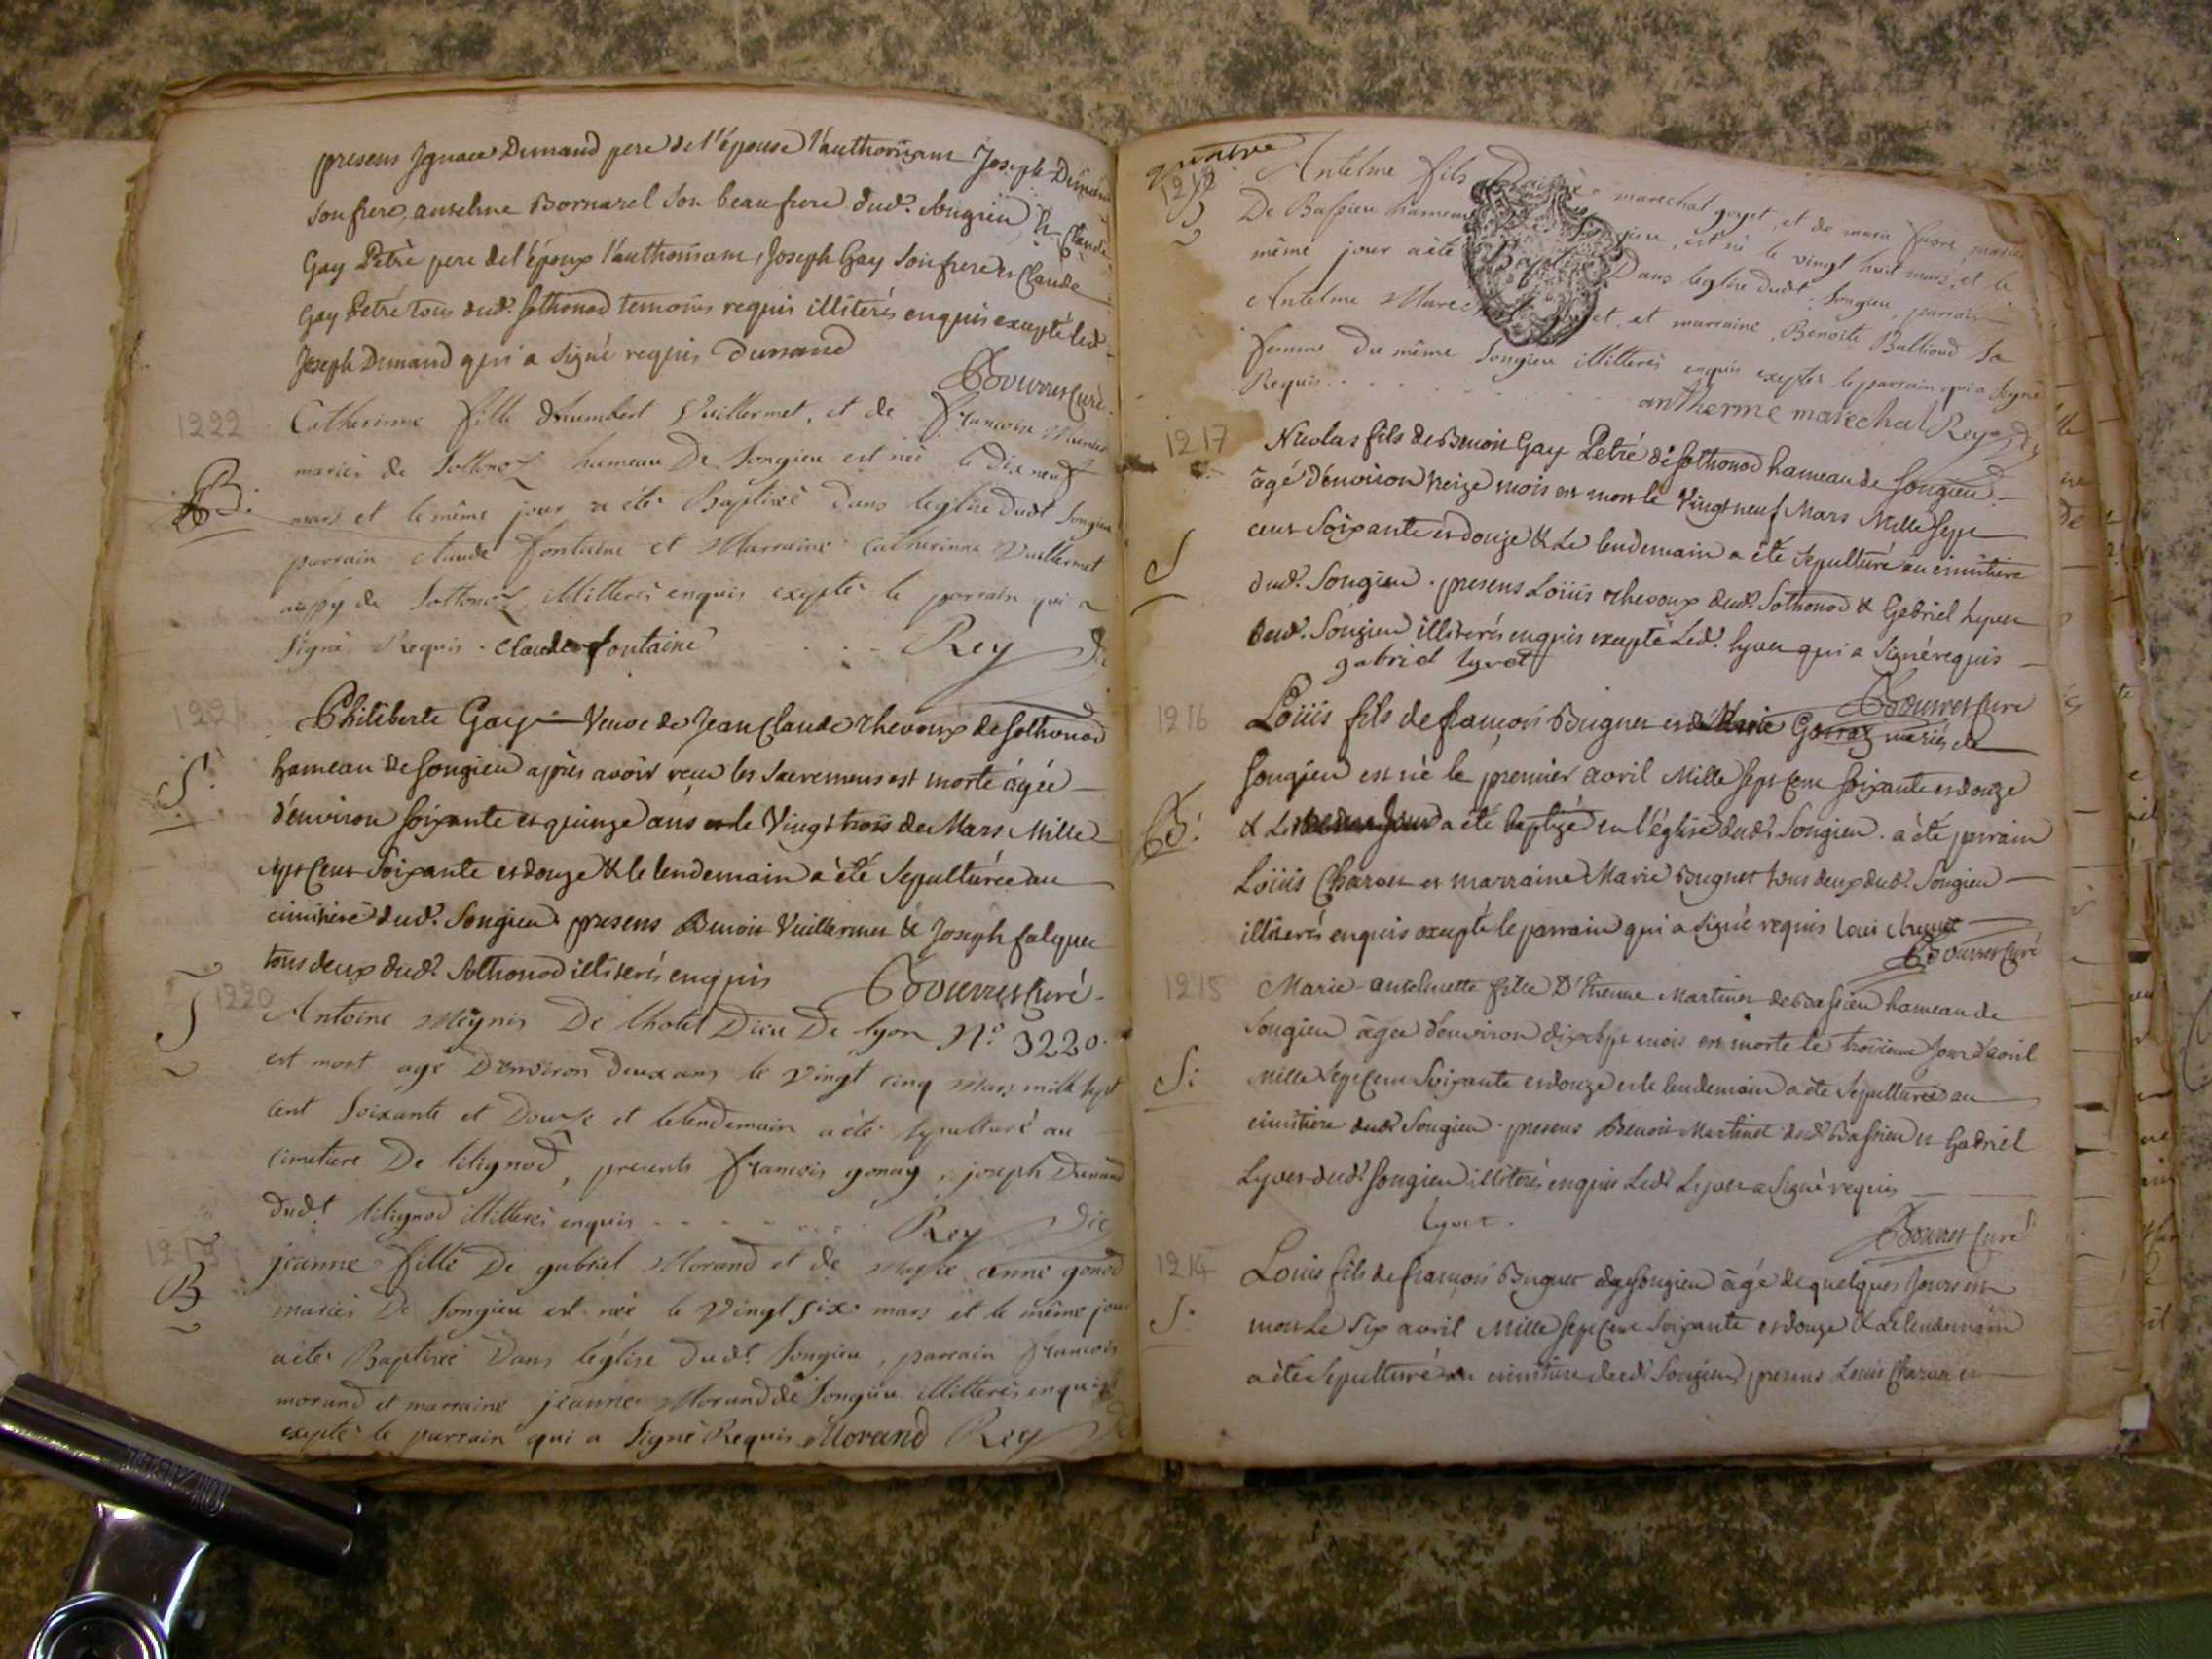 presens Ignace Dunand pere de l'épouse l'authorisant Joseph Dunand
son frere, antelme Bornarel son beau frere dud. Songieu, & Claude
Gay Petré pere de l'époux l'authorisant, Joseph Gay son frere et Claude
Gay Petré tous dud. Sothonod temoins requis illiterés enquis excepté led.
Joseph Dunand qui a signé requis Dunand
Bourret Curé.
1222
Catherinne fille dhumbert Vuillermet, et de francoise
mariés de Sottonoz hameau De Songieu est née le dix neuf
B.
mars et le même jour a été Baptisée dans leglise dudt Songieu
parrain claude fontaine et Marraine catherinne Vuillermet
de Sottonoz, illitterés enquis exeptés le parrain qui a
signé Requis. Claude fontaine Rey
1221
Philiberte Gay Veuve de Jean Claude Thevoux de Sothonod
hameau de Songieu après avoir reçu les Sacremens est morte âgée
S.
d'environ soixante et quinze ans le Vingt trois de Mars Mille
sept Cent Soixante et douze & le lendemain a été Sepulturée au
cimitiere dud. Songieu presens Benoit Vuillermet & Joseph falquet
tous deux dud. Sothonod illiterés enquis Bourret Curé.
1220
S
Antoine Meynis De lhotel Dieu De lyon N.° 3220.
est mort agé D'environ deux ans le vingt cinq Mars mille sept
cent Soixante et Douze et le lendemain a été sepulturé au
cimetiere De lilignod, presents francois gonay, joseph Dunand
dudt lilignod illitterés enquis Rey
1219
B
jeanne fille De gabriel Morand et de anne gonod
mariés De Songieu est née le Vingt six mars et le même jour
a été Baptisée Dans l'église dudt Songieu, parrain francois
morand et marraine jeanne Morand de Songieu illitterés enquis
exepté le parrain qui a signé Requis Morand Rey
quatre
1218
B
Antelme fils marechal goyet, et de marie favre mariés
De Bassieu hameau Songieu, est né le vingt huit mars, et le
même jour a été Baptisé Dans leglise dudt Songieu, parrain
Antelme Marechal goyet, et marraine, Benoite Balliand sa
femme du même Songieu illitterés enquis exeptés le parrain qui a signé
Requis
antherme marechal Rey
1217
Nicolas fils de Benoit Gay Petré de Sothonod hameau de Songieu
âgé d'environ treize mois est mort le Vingt neuf Mars Mille sept
cent Soixante et douze & Le lendemain a été Sepulturé au cimitiere
S
dud. Songieu. presens Loüis Thevoux dud. Sothonod & Gabriel Lyvet
dud. Songieu illiterés enquis excepté Led. Lyvet qui a signé requis
gabriel lyvet
Bourret Curé
1216
Loüis fils de françois Bugnet et de Marie Gorraz mariés de
Songieu est né le premier avril Mille sept Cent soixante et douze
B.
& Le a été baptizé en l'église dud. Songieu. a été parrain
Loüis Charvet et marraine Marie Bugnet tous deux dud. Songieu
illiterés enquis excepté le parrain qui a signé requis Loui
Bourret Curé
1215
Marie antelmette fille D'Etienne Martinet de Bassieu hameau de
Songieu âgée d'environ dix sept mois est morte le troisieme jour d'avril
S.
Mille sept Cent Soixante et douze et le lendemain a été Sepulturée au
cimitiere dud. Songieu. presens Benoit Martinet dud. Bassieu et Gabriel
Lyvet dud. Songieu illiterés enquis Led. Lyvet a signé requis
lyvet.
Bourret Curé
1214
Louis fils de françois Bugnet de Songieu âgé de quelques jours est
S.
mort Le six avril Mille sept Cent Soixante et douze & Le lendemain
a été Sepulturé au cimitiere dud. Songieu presens Louis Charvet et